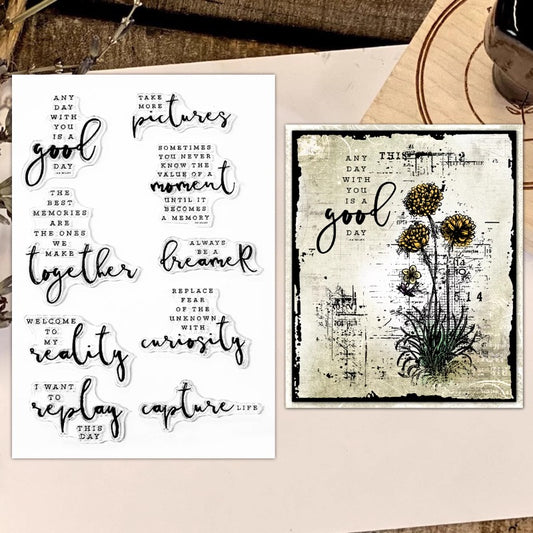 ANY
DAY
WITH
YOU
IS A
good
DAY
TAKE
MORE
pictures
SOMETIMES
YOU NEVER
KNOW THE
VALUE OF A
moment
UNTIL IT
BECOMES
A MEMORY
THE
BEST
MEMORIES
ARE
THE ONES
WE
MAKE
together
ALWAYS
BE A
dreameR
REPLACE
FEAR
OF THE
UNKNOWN
WITH
curiosity
WELCOME
TO
MY
reality
I WANT
TO
replay
THIS
DAY
capture LIFE
ANY
DAY
WITH
YOU
IS A
good
DAY
THIS
2
5 14